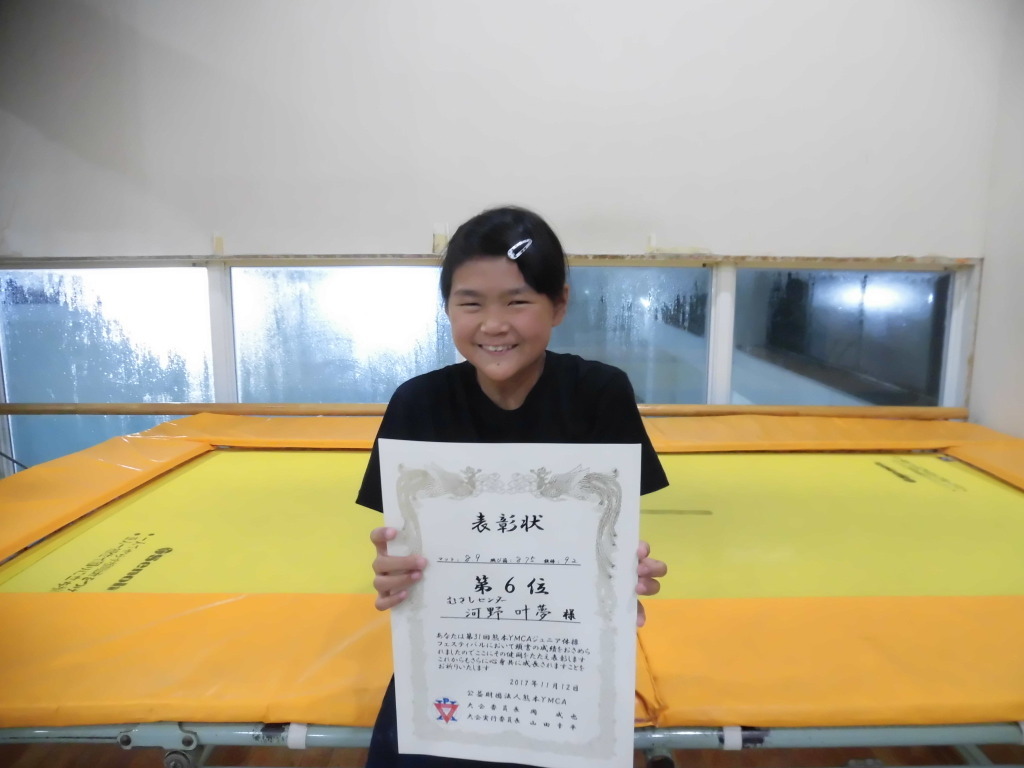 表彰状
マット 8.9 跳び箱 8.75 鉄棒 9.2
第6位
河野 叶夢 様
あなたは第31回熊本YMCAジュニア体操
フェスティバルにおいて頭書の成績をおさめら
れましたのでここにその健闘をたたえ表彰します
これからもさらに心身共に成長されますことを
お祈りいたします
2017年11月12日
公益財団法人熊本YMCA
大会委員長 岡 成也
大会実行委員長 山田
Senoh